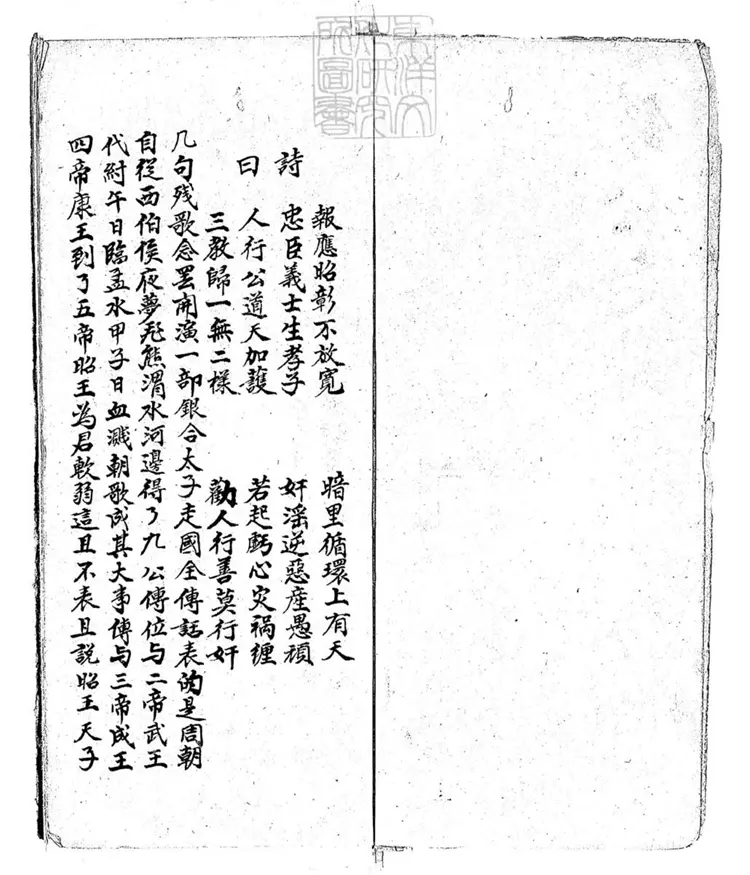 東洋文
化研究
所圖書
報應昭彰不放寬 暗里循環上有天
詩 忠臣義士生孝子 奸滛逆惡産愚頑
曰 人行公道天加護 若起虧心灾禍纏
三教歸一無二樣 勸人行善莫行奸
几句残歌念罢開演一部銀合太子走國全傳話表的是周朝
自從西伯侯夜夢飛熊渭水河邊得了九公傳位与二帝武王
代紂午日臨孟水甲子日血溅朝歌成其大事傳与三帝成王
四帝康王到了五帝昭王為君軟弱這且不表且説昭王天子